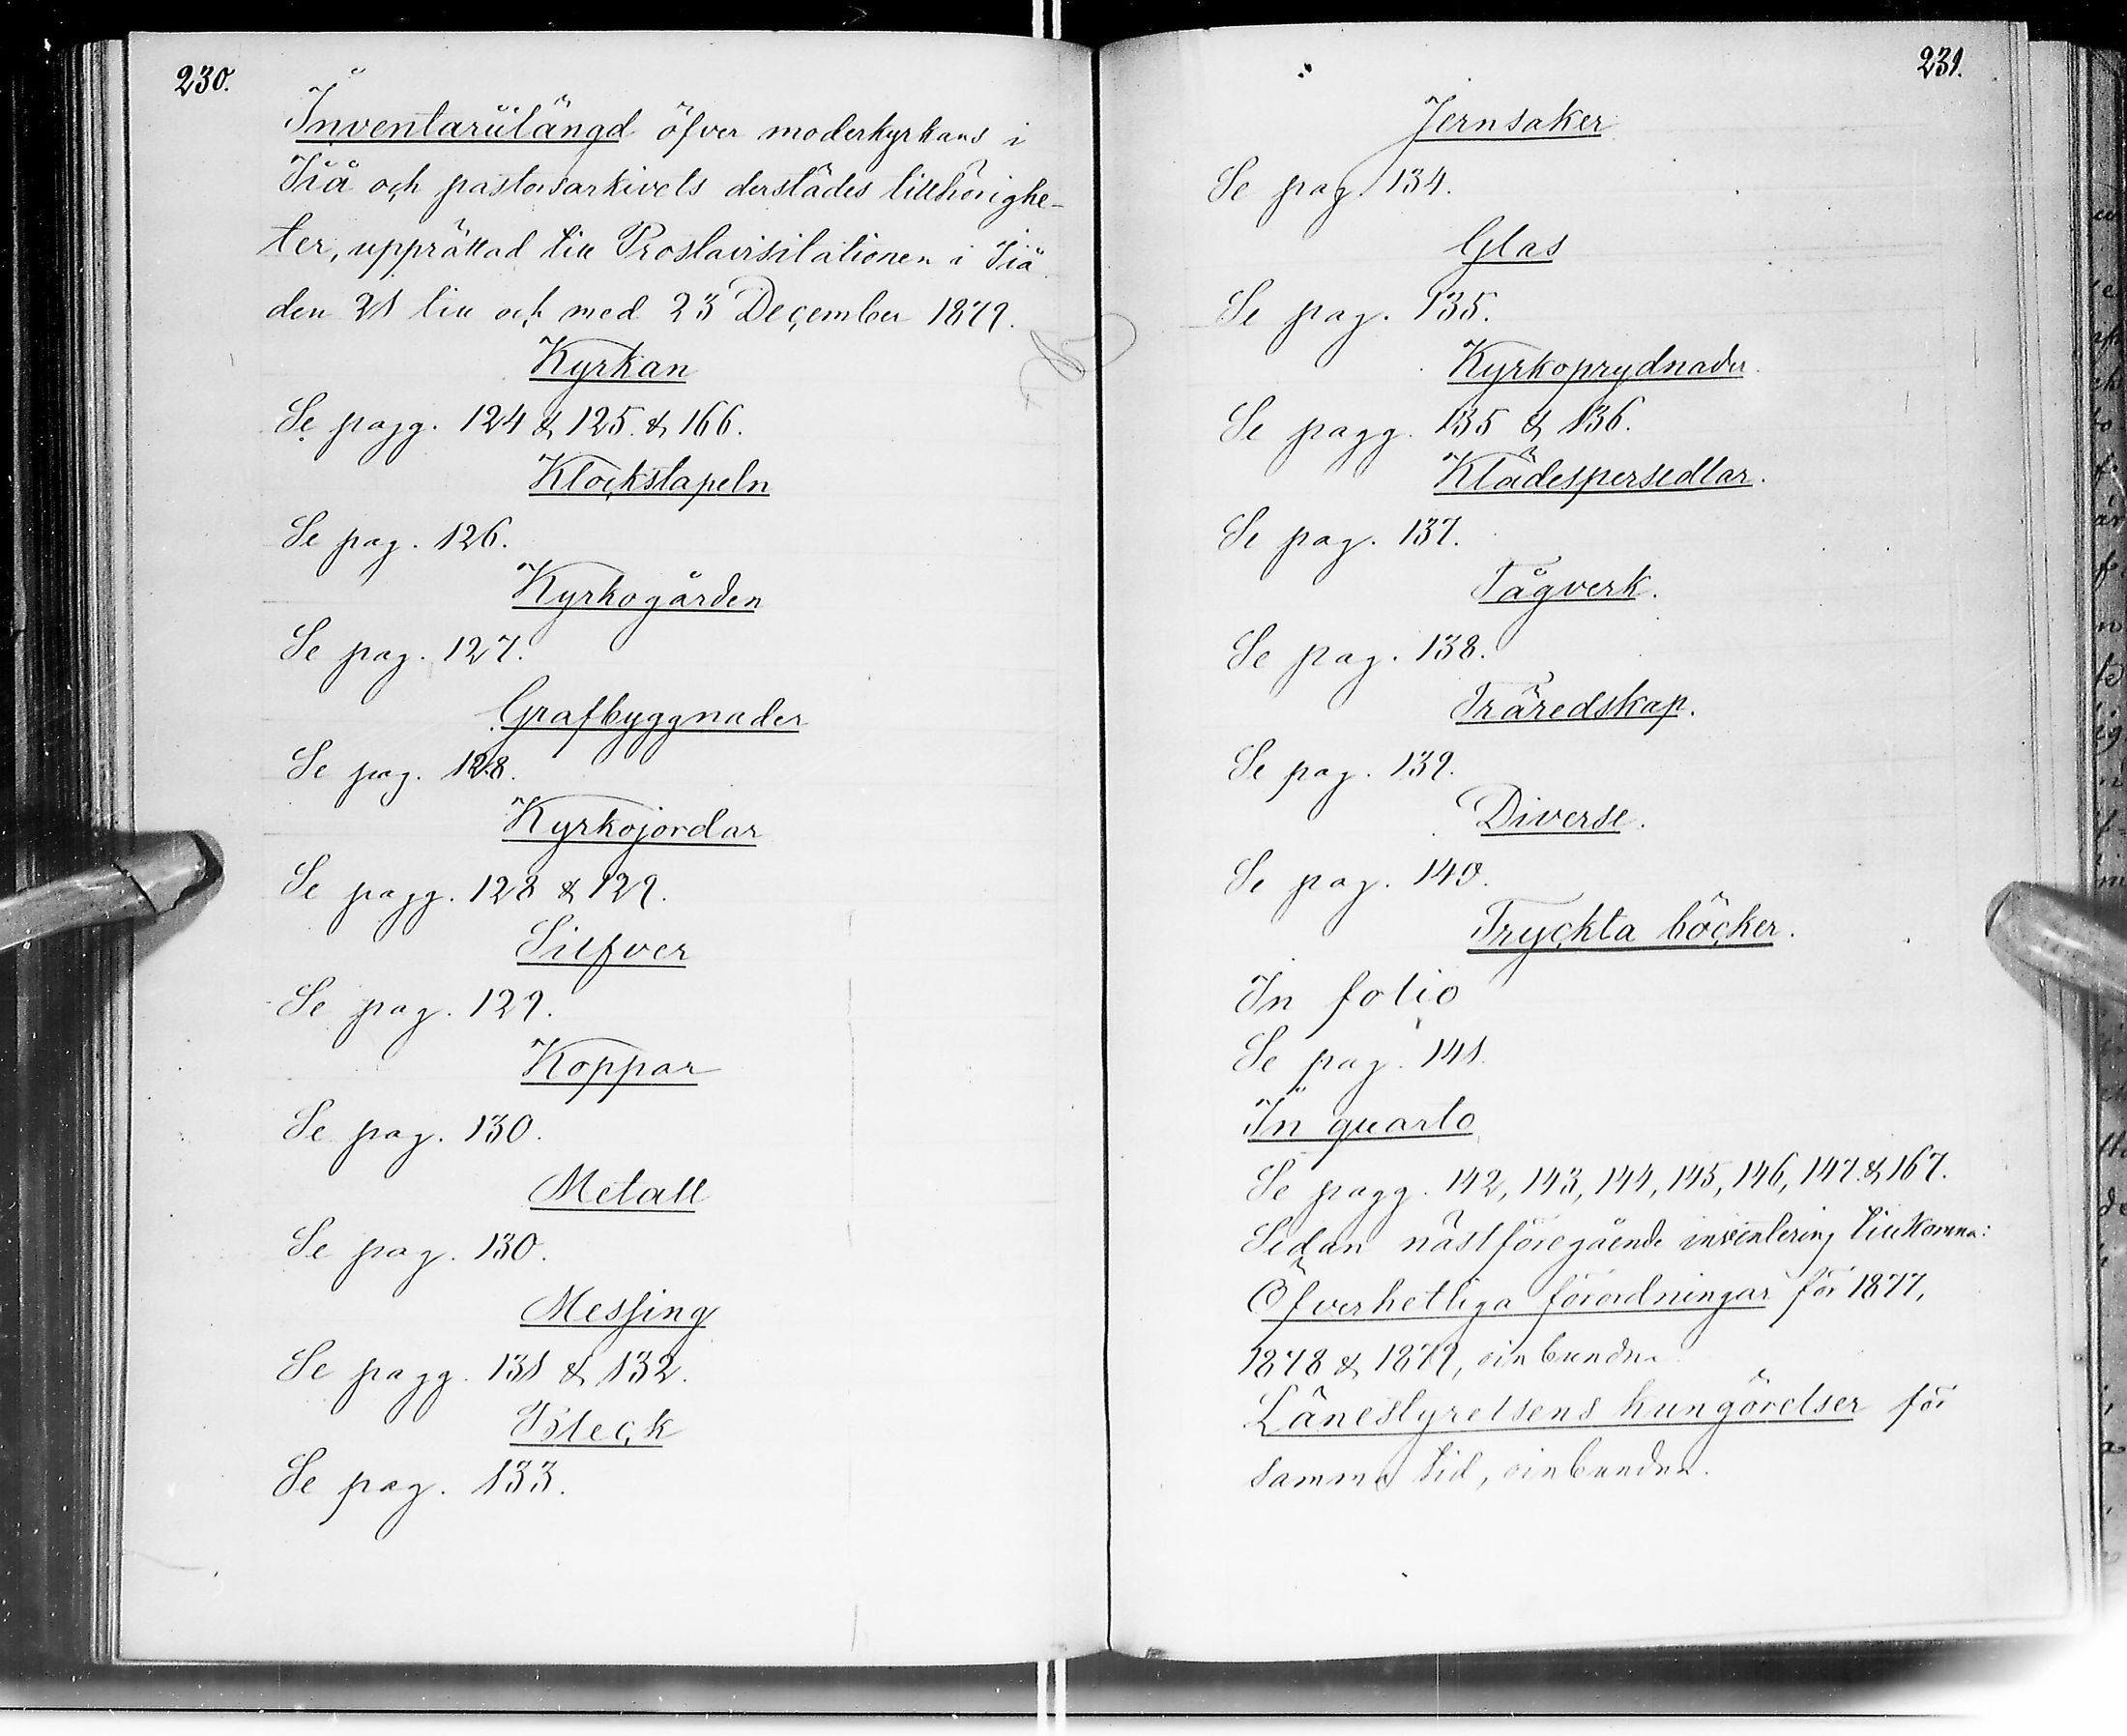 230.
Inventariilängd öfver moderkyrkans i
Ijå och pastorsarkivets derstädes tillhörighe-
ter, upprättad till Prostvisitationen i Ijå
den 21 till och med 23 December 1879.
Kyrkan
Se pagg. 124 & 125. & 166.
Klockstapeln
Se pag. 126.
Kyrkogården
Se pag. 127.
Grafbyggnader
Se pag. 128.
Kyrkojordar
Se pagg. 128 & 129.
Silfver
Se pag. 129.
Koppar
Se pag. 130.
Metall
Se pag. 130.
Messing
Se pagg. 131 & 132.
Bleck
Se pag. 133.
231.
Jernsaker
Se pag. 134.
Glas
Se pag. 135.
Kyrkoprydnader.
Se pagg. 135 & 136.
Klädespersedlar.
Se pag. 137.
Tågverk.
Se pag. 138.
Träredskap.
Se pag. 139.
Diverse.
Se pag. 140.
Tryckta böcker.
In folio
Se pag. 141.
In quarto
Se pagg. 142, 143, 144, 145, 146, 147. & 167.
Sedan nästföregående inventering tillkomna:
Öfverhetliga förordningar för 1877,
1878 & 1879, oinbundna
Länestyrelsens kungörelser för
samma tid, oinbundna.